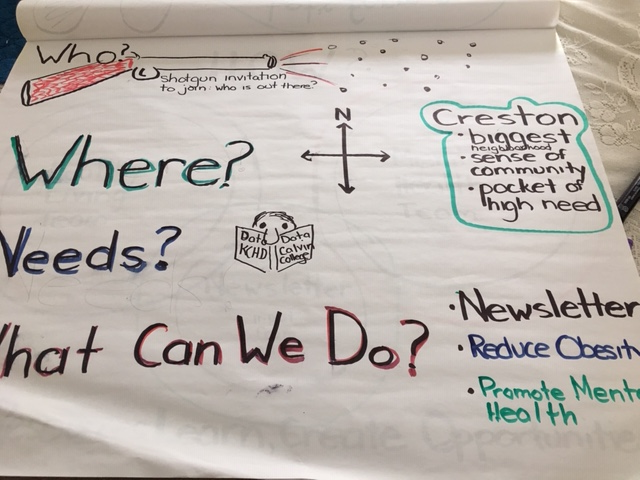 Who?
Shotgun invitation
to join: who is out there?
N
Where?
Creston
• biggest
neighborhood
• sense of
community
• pocket of
high need
Needs?
Data
KCHD
Data
Calvin
College
What Can We Do?
• Newsletter
• Reduce Obesit
• Promote Ment
Health